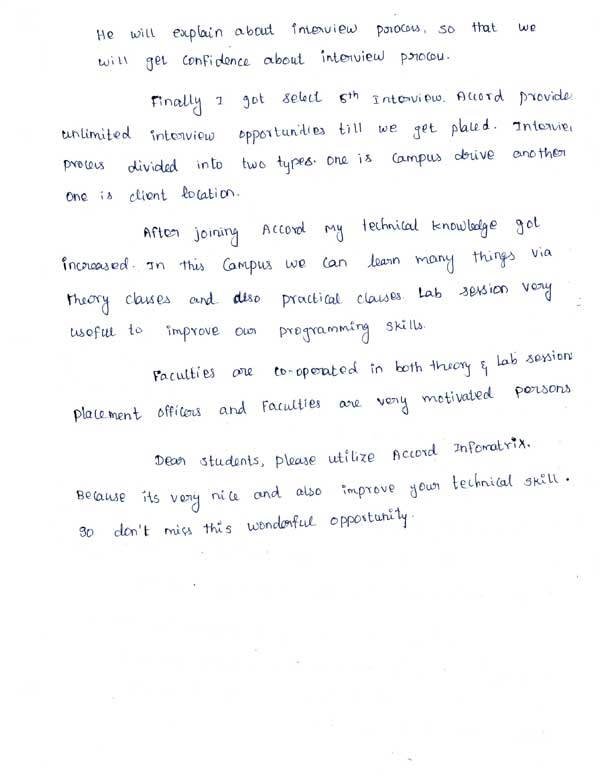 He will explain about interview process, so that we
will get confidence about interview process.
Finally I got select 5th Interview. Accord provide
unlimited interview opportunities till we get placed. Intervie
process divided into two types. one is campus drive another
one is client location.
After joining Accord my technical knowledge got
increased. In this campus we can learn many things via
theory classes and also practical classes. Lab session very
useful to improve our programming skills.
Faculties are co-operated in both theory & Lab session
placement officers and Faculties are very motivated persons
Dear students, please utilize Accord Infomatrix.
Because its very nice and also improve your technical skill.
so don't miss this wonderful opportunity.